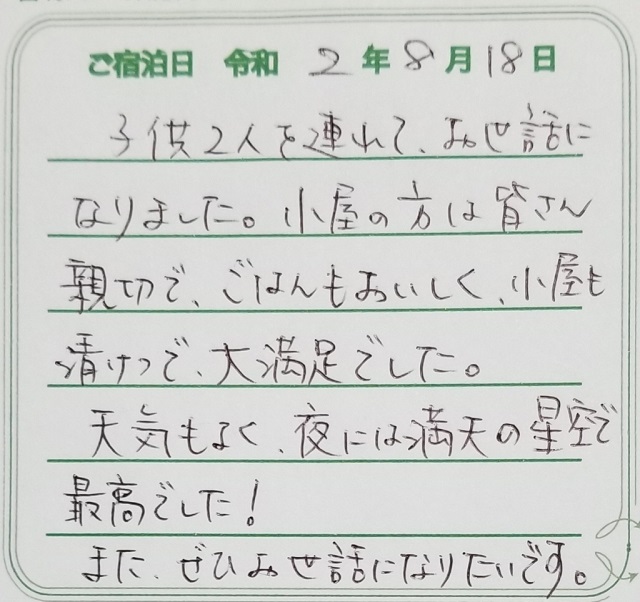 ご宿泊日 令和 2年8月18日
子供2人を連れて、お世話に
なりました。小屋の方は皆さん
親切で、ごはんもおいしく、小屋も
清けつで、大満足でした。
天気もよく、夜には満天の星空で
最高でした!
また、ぜひお世話になりたいです。